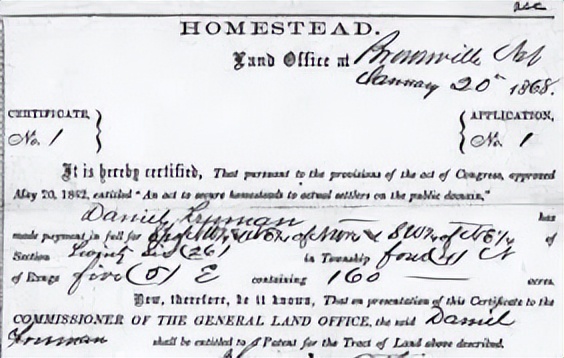 HOMESTEAD.
Land Office at Brownville Neb
January 20th 1868.
CERTIFICATE, APPLICATION,
No. 1 No. 1
It is hereby certified, That pursuant to the provisions of the act of Congress, approved
May 20, 1862, entitled "An act to secure homesteads to actual settlers on the public domain,"
Daniel Freeman has
made payment in full for of NW¼ & SW¼ of NE¼ of
Section Twenty Six (26) in Township four (4) N
of Range five (5) E containing 160 acres.
Now, therefore, be it known, That on presentation of this Certificate to the
COMMISSIONER OF THE GENERAL LAND OFFICE, the said Daniel
Freeman shall be entitled to a Patent for the Tract of Land above described.